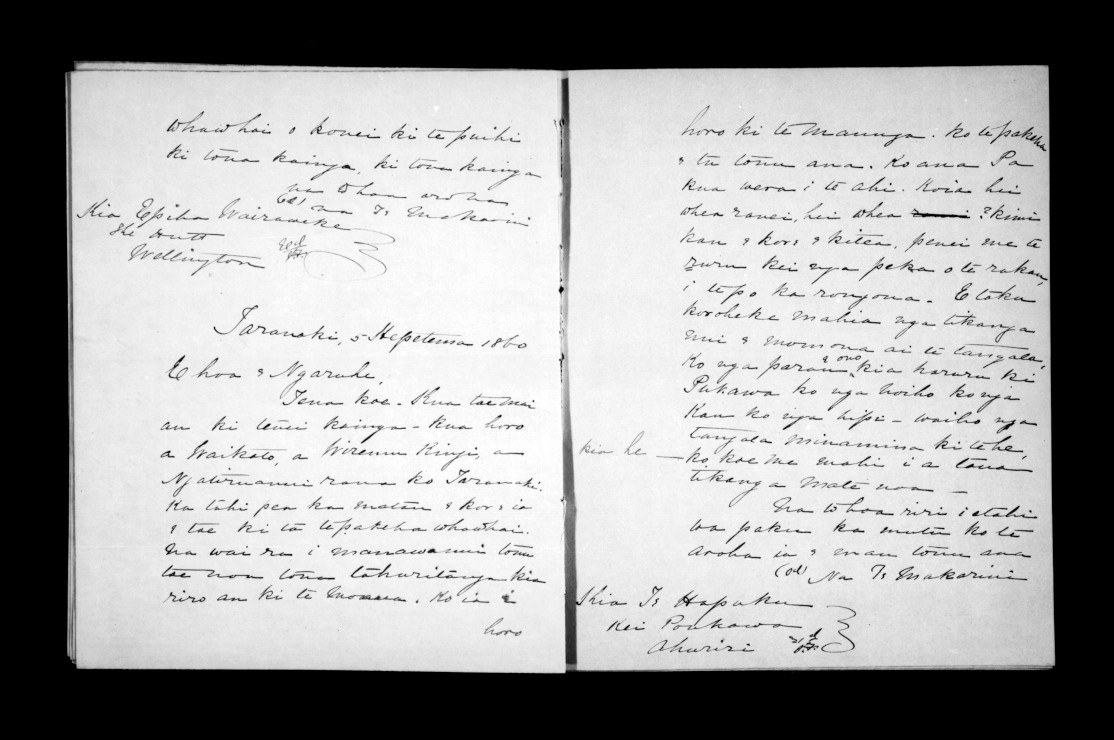 whawhai o konei ki te puihi
ki tona kainga, ki tona kainga
na to hoa aroha
(Od) na Te Makarini
Kia Epiha Wairaweke
The Hutt
Wellington
Taranaki, 5 Hepetema 1860
E hoa e Ngaruhe,
Tena koe. Kua tae mai
au ki tenei kainga - kua horo
a Waikato, a Wiremu Kingi, a
Ngatiruanui rana ko Taranaki.
Ka tahi pea ka matau e kore ia
e tae ki ta te pakeha whawhai.
Na wai ra i manawanui tonu
tae noa tona tahuritanga kia
riro au ki te Moana. Ko ia i
horo
horo ki te Maunga. ko te pakeha
e tu tonu ana. Ko ana Pa
kua wera i te ahi. Koia hei
whea ranei, hei whea ? kimi
kau e kore e kitea, penei me te
ruru kei nga peka o te rakau,
i te po ka rongona. E taku
koroheke mahia nga tikanga
nui e momona ai te tangata,
Ko nga parau e ono kia haruru ki
Pukawa ko nga hoiho ko nga
Kau ko nga hipi - waiho nga
tangata minamina ki te he,
kia he — ko koe me mahi i a tana
tikanga mate noa —
Na to hoa riri i etahi
wa paku ka mutu ko te
aroha ia e mau tonu ana
(Od) Na Te Makarini
Kia Te Hapuku
Kei Poukawa
Ahuriri